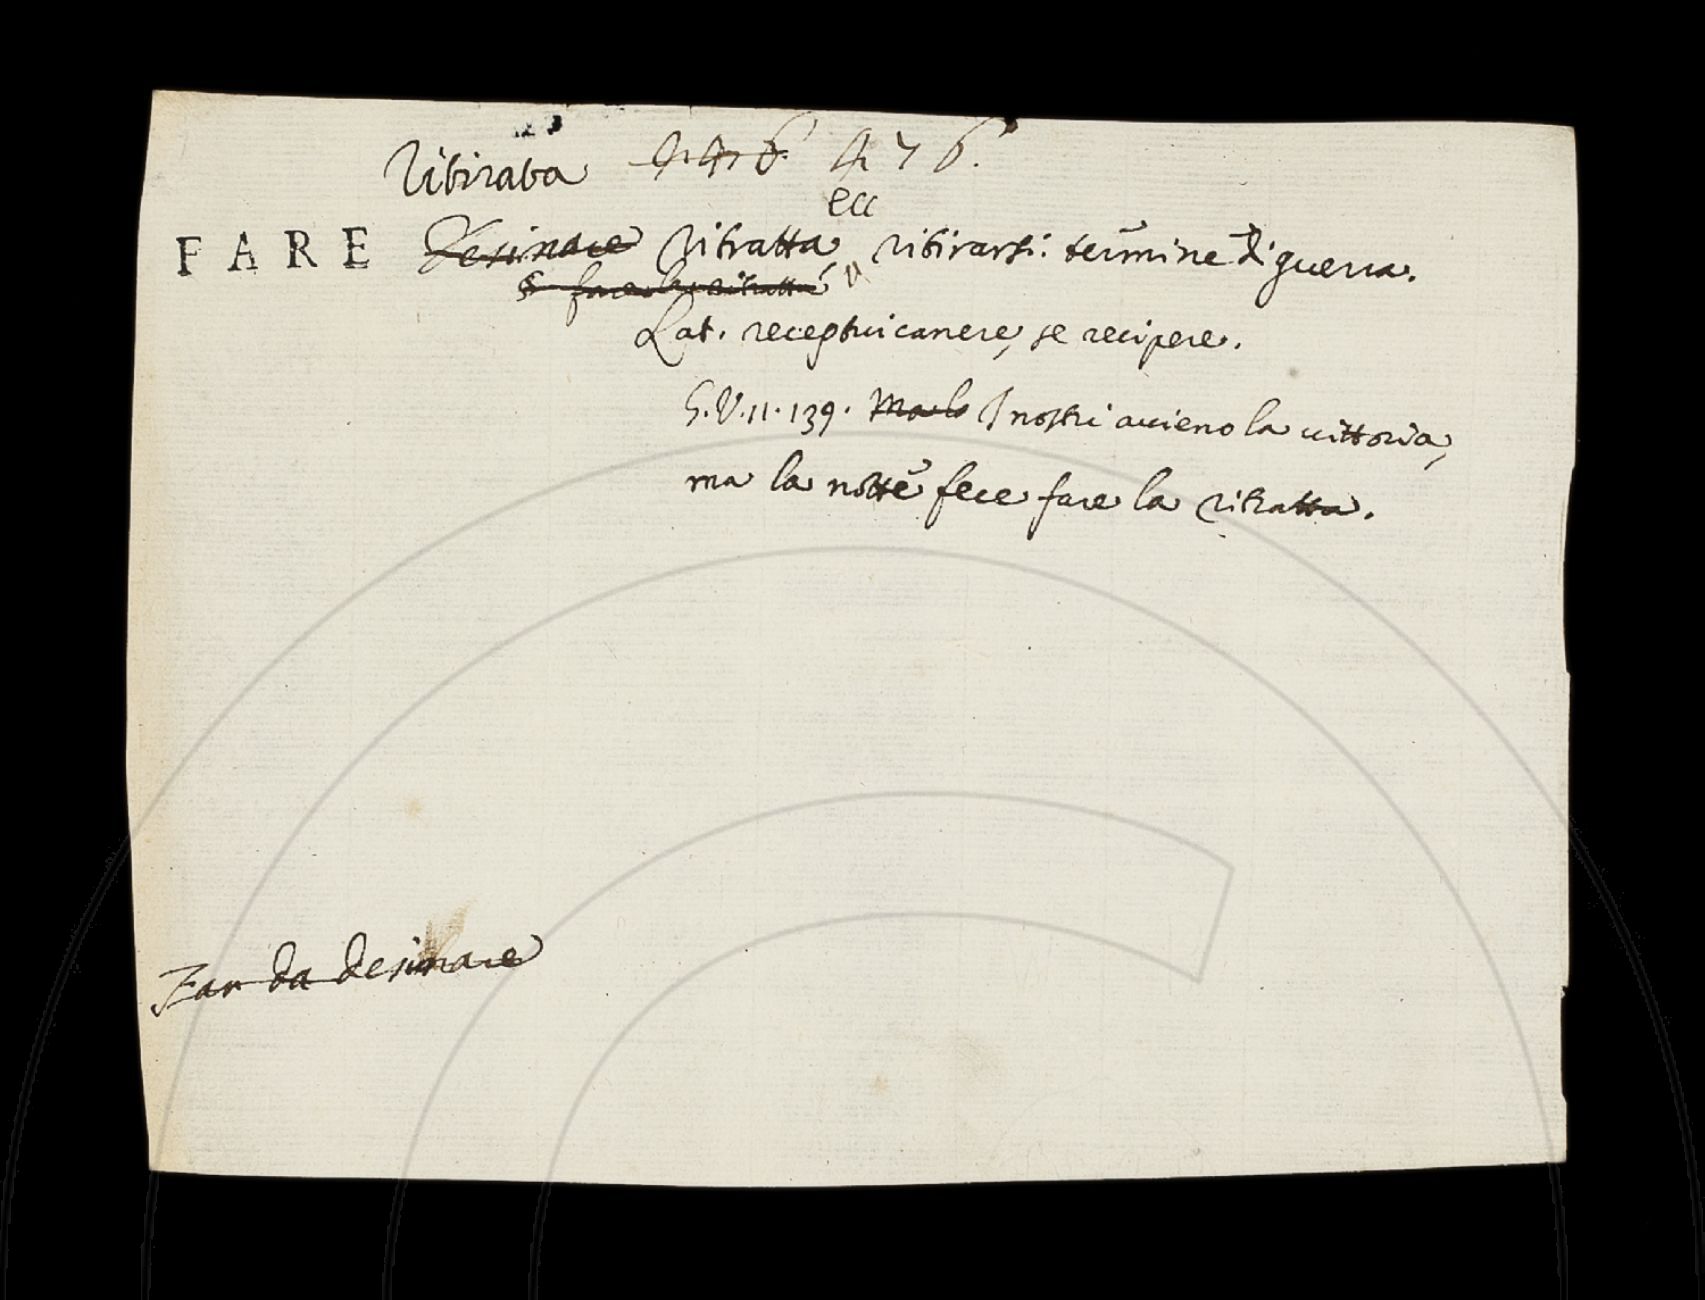 Ritirata 4476 476.
ecc
FARE desinare Ritratta, ritirarsi: termine di guerra.
e fare la ritratta
Lat. receptui canere, se recipere.
G.V.11.139. Ma la I nostri avieno la vittoria,
ma la notte fece fare la ritratta.
Far da desinare